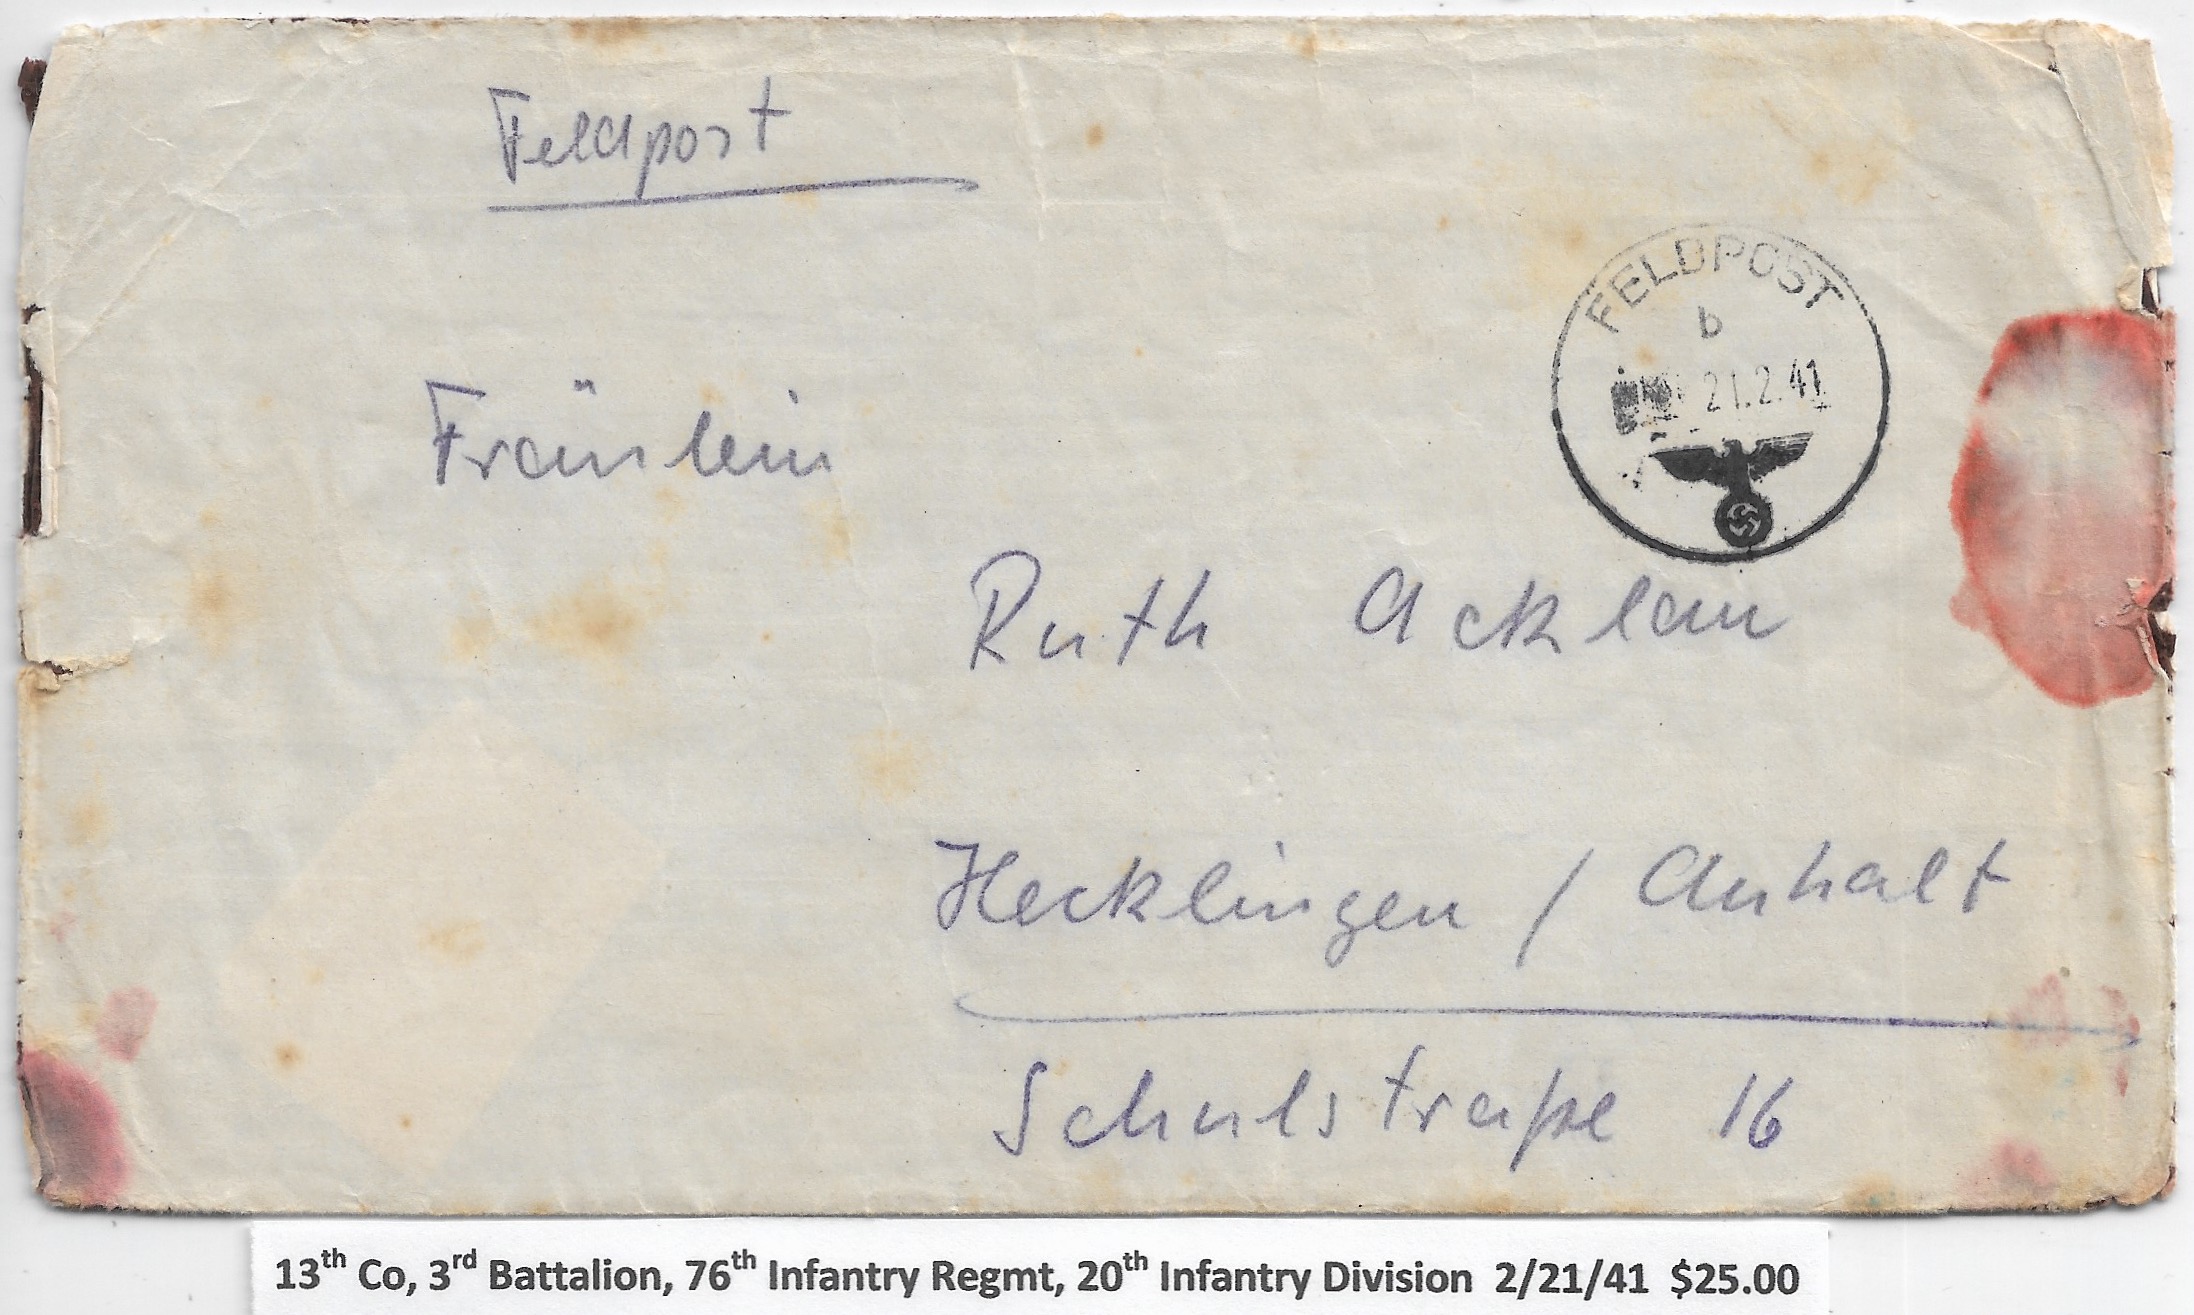 Feldpost
FELDPOST
b
21.2.41
Fräulein
Ruth Acklau
Hecklingen / Anhalt
Schulstraße 16
13th Co, 3rd Battalion, 76th Infantry Regmt, 20th Infantry Division 2/21/41 $25.00